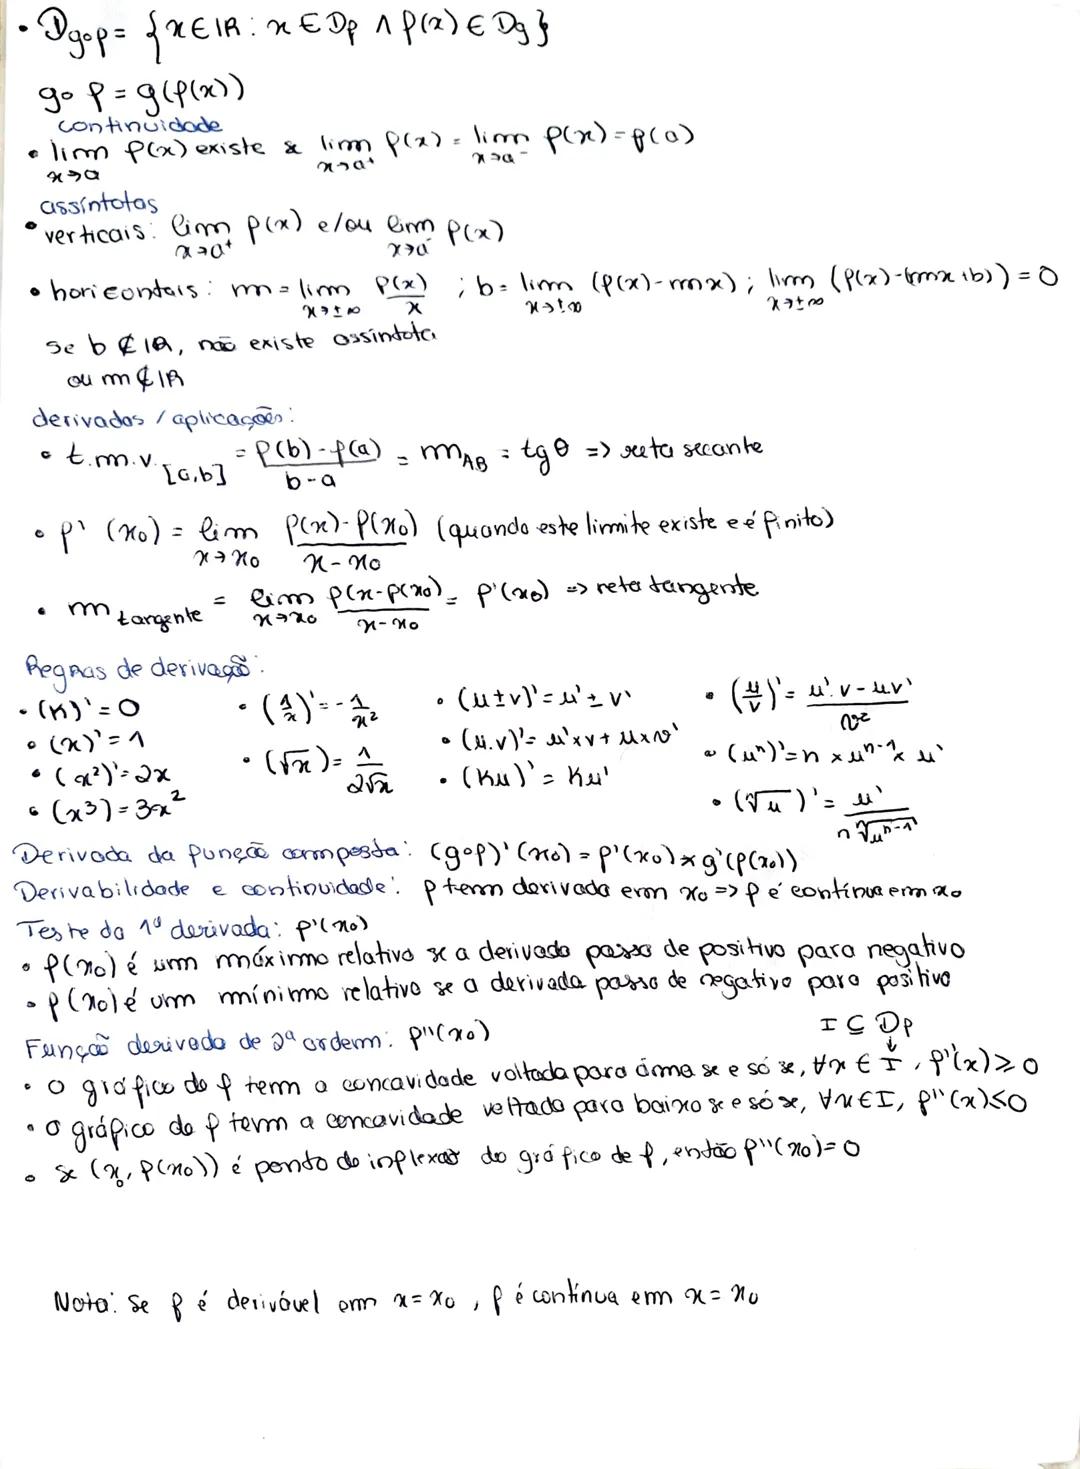 • Dg∘f = {x ∈ IR : x ∈ Df ∧ f(x) ∈ Dg}
g∘f = g(f(x))
continuidade
• lim x→a f(x) existe se lim x→a⁺ f(x) = lim x→a⁻ f(x) = f(a)
assíntotas
• verticais: lim x→a⁺ f(x) e/ou lim x→a⁻ f(x)
• horizontais: m = lim x→±∞ f(x)/x ; b = lim x→±∞ (f(x)-mx) ; lim x→±∞ (f(x)-(mx+b)) = 0
se b ∉ IR, não existe assíntota
ou m ∉ IR
derivadas / aplicações:
• t.m.v. [a,b] = f(b)-f(a)/b-a = mAB = tg θ => reta secante
• f'(x₀) = lim x→x₀ f(x)-f(x₀)/x-x₀ (quando este limite existe e é finito)
• m tangente = lim x→x₀ f(x-f(x₀)/x-x₀ = f'(x₀) => reta tangente
Regras de derivação:
• (K)' = 0 • (1/x)' = -1/x² • (u±v)' = u' ± v' • (u/v)' = u'.v - u.v'/v²
• (x)' = 1 • (u.v)' = u'×v + u×v' • (uⁿ)' = n × uⁿ⁻¹ × u'
• (x²)' = 2x • (√x) = 1/2√x • (Ku)' = Ku'
• (x³) = 3x² • (ⁿ√u)' = u'/n ⁿ√uⁿ⁻¹
Derivada da função composta: (g∘f)'(x₀) = f'(x₀) × g'(f(x₀))
Derivabilidade e continuidade: f tem derivada em x₀ => f é contínua em x₀
Teste da 1ª derivada: f'(x₀)
• f(x₀) é um máximo relativo se a derivada passa de positivo para negativo
• f(x₀) é um mínimo relativo se a derivada passa de negativo para positivo
Função derivada de 2ª ordem: f''(x₀) I ⊆ Df
• o gráfico de f tem a concavidade voltada para cima se e só se, ∀x ∈ I, f''(x) ≥ 0
• o gráfico de f tem a concavidade voltada para baixo se e só se, ∀x ∈ I, f''(x) ≤ 0
• se (x₀, f(x₀)) é ponto de inflexão do gráfico de f, então f''(x₀) = 0
Nota: se f é derivável em x = x₀, f é contínua em x = x₀